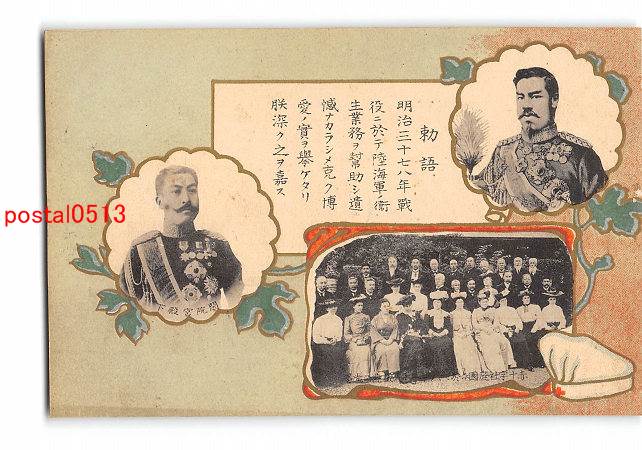 勅語
明治三十七八年戦
役ニ於テ陸海軍ノ衛
生業務ヲ幇助シ遺
憾ナカラシメ克ク博
愛ノ實ヲ擧ケタリ
朕深ク之ヲ嘉ス
閑院宮殿下
postal0513